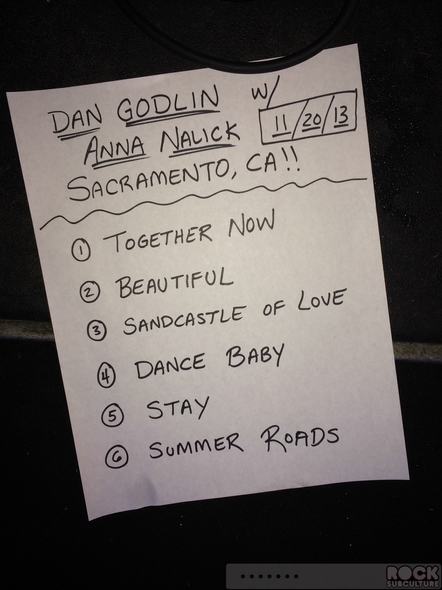 DAN GODLIN W/
ANNA NALICK 11/20/13
SACRAMENTO, CA!!
1 TOGETHER NOW
2 BEAUTIFUL
3 SANDCASTLE OF LOVE
4 DANCE BABY
5 STAY
6 SUMMER ROADS
ROCK
SUBCULTURE